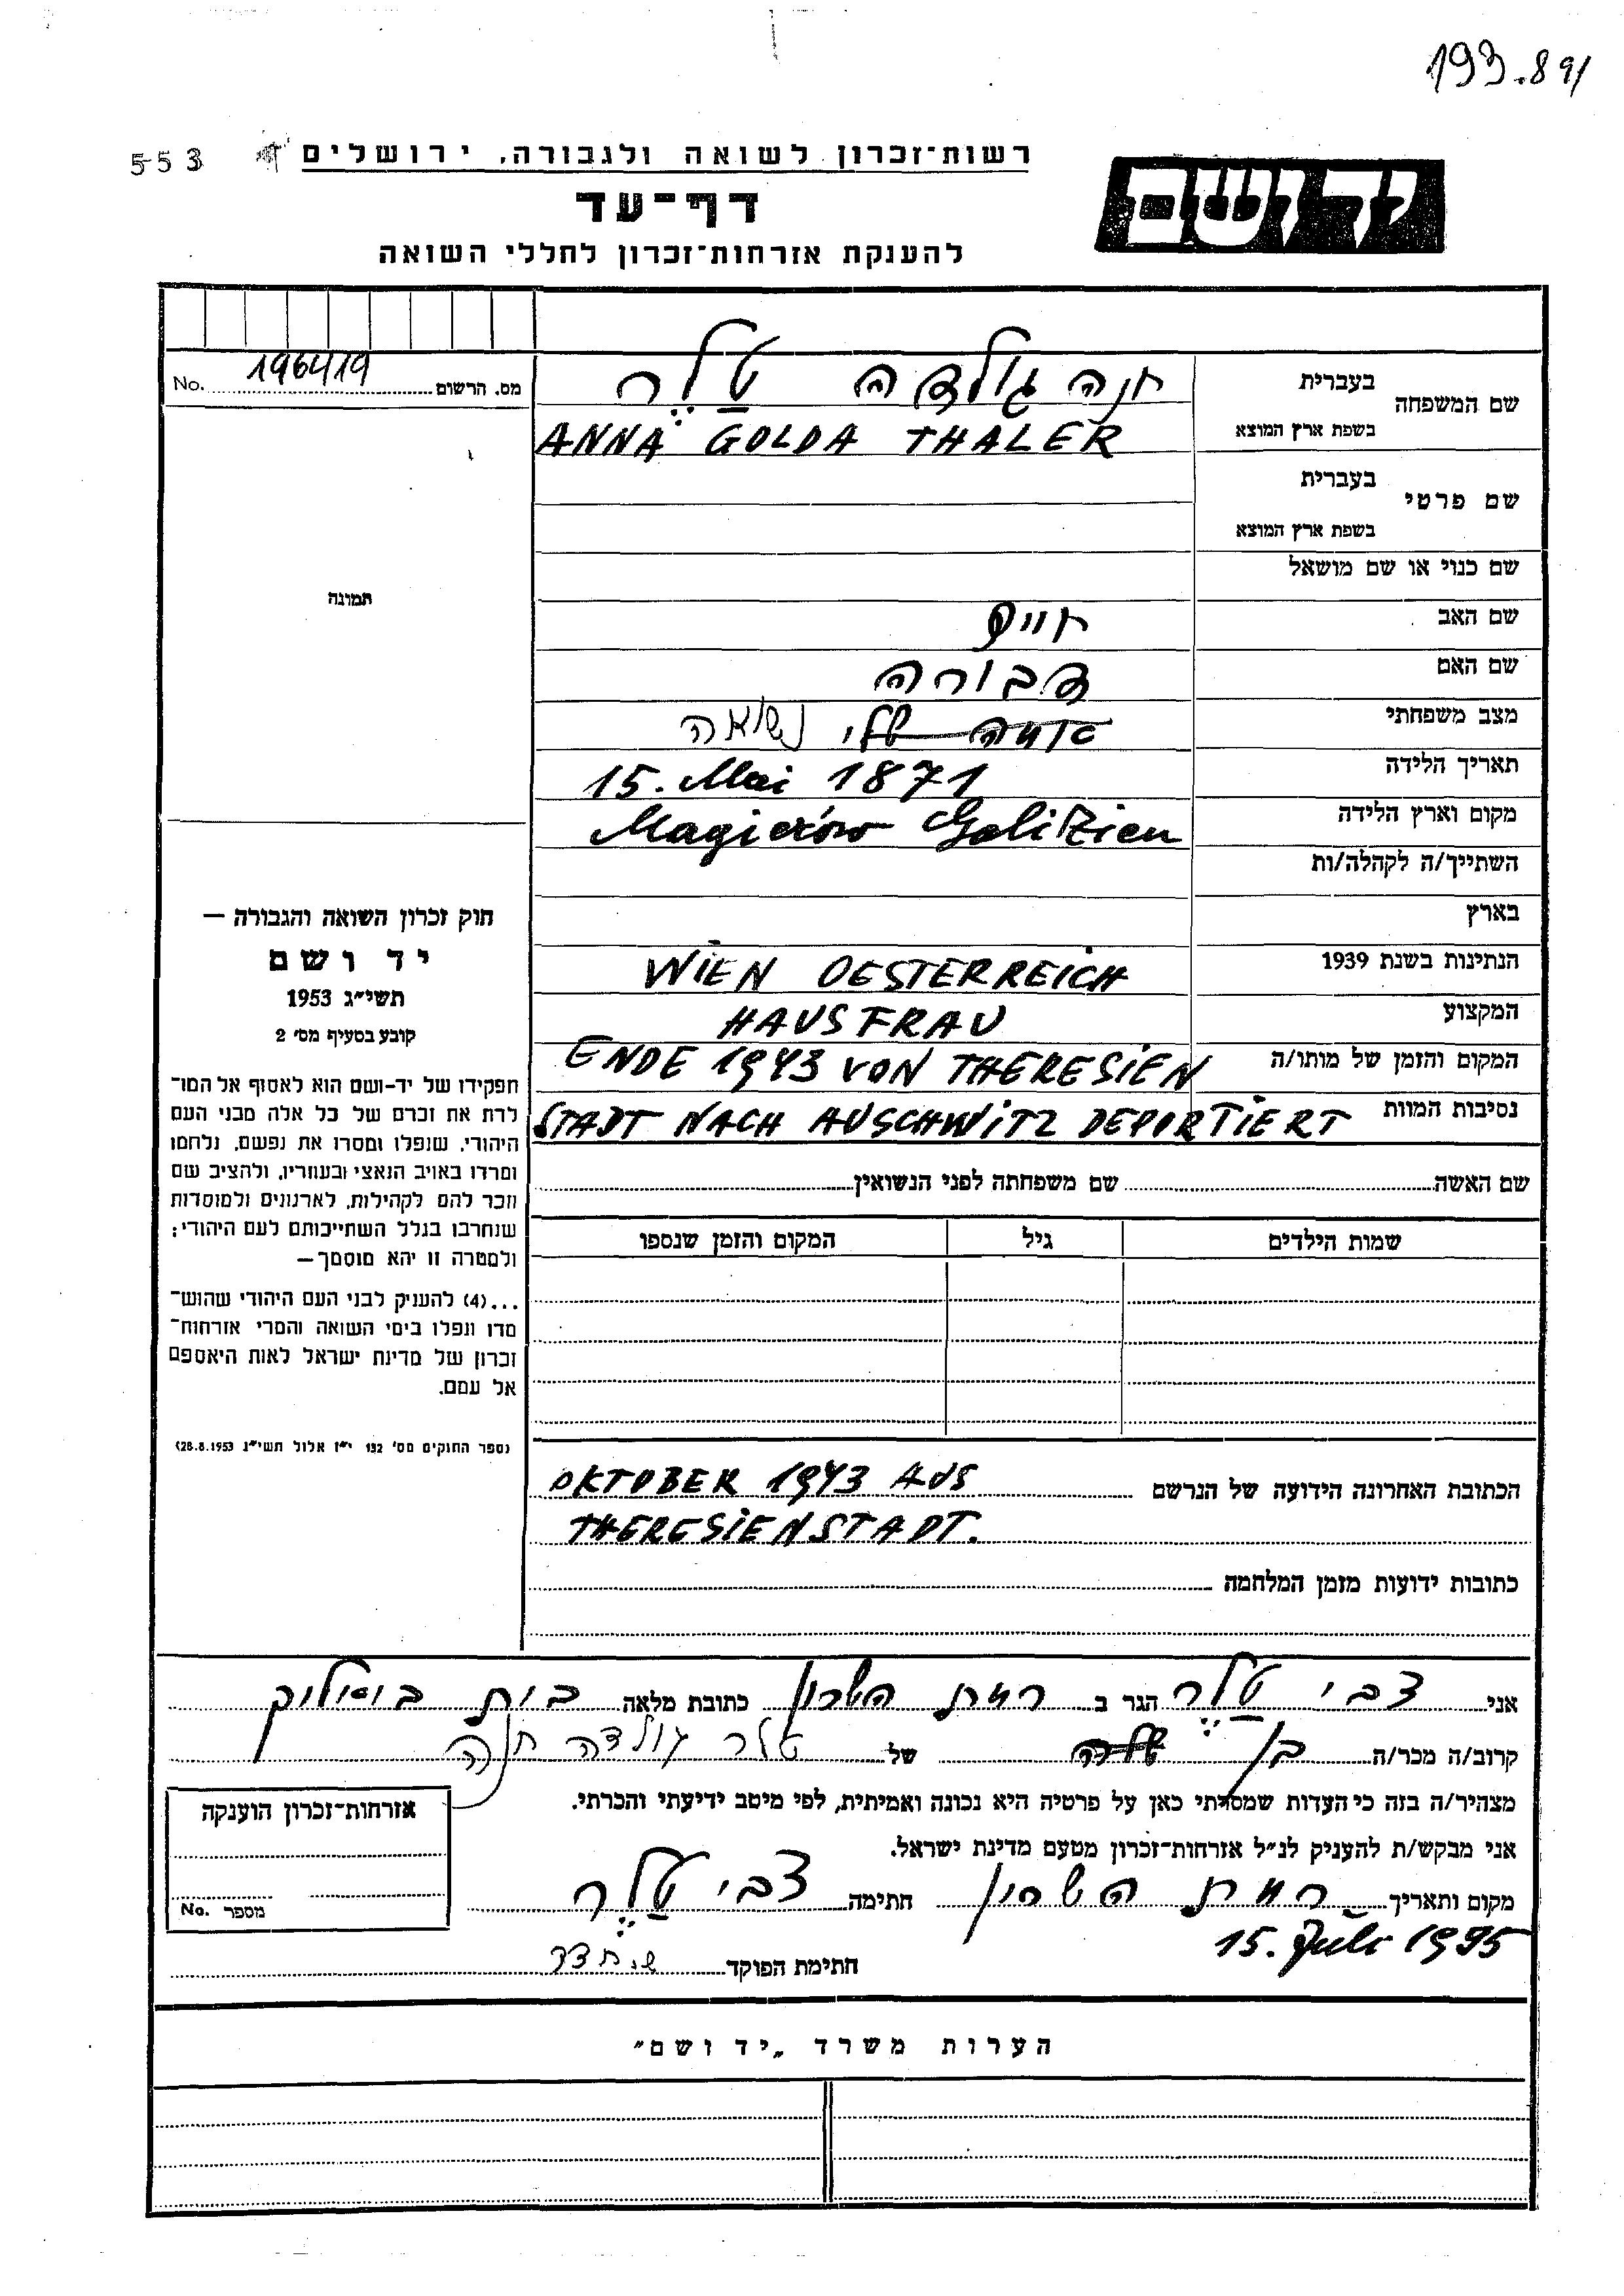 193.891
553
רשות־זכרון לשואה ולגבורה, ירושלים
יד ושם
דף־עד
להענקת אזרחות־זכרון לחללי השואה
מס. הרשום 196419 No.
שם המשפחה בעברית חנה גולדה טלר
בשפת ארץ המוצא ANNA GOLDA THALER
שם פרטי בעברית
בשפת ארץ המוצא
שם כנוי או שם מושאל
שם האב חיים
שם האם דבורה
מצב משפחתי נשואה
תאריך הלידה 15. Mai 1871
מקום וארץ הלידה Magierów Galitzien
השתייך/ה לקהלה/ות
בארץ
הנתינות בשנת 1939 WIEN OESTERREICH
המקצוע HAUSFRAU
המקום והזמן של מותו/ה ENDE 1943 VON THERESIEN
נסיבות המוות STADT NACH AUSCHWITZ DEPORTIERT
שם האשה שם משפחתה לפני הנשואין
שמות הילדים גיל המקום והזמן שנספו
הכתובת האחרונה הידועה של הנרשם OKTOBER 1943 AUS
THERESIENSTADT.
כתובות ידועות מזמן המלחמה
תמונה
חוק זכרון השואה והגבורה —
יד ושם
תשי״ג 1953
קובע בסעיף מס׳ 2
תפקידו של יד-ושם הוא לאסוף אל המו־
לדת את זכרם של כל אלה מבני העם
היהודי, שנפלו ומסרו את נפשם, נלחמו
ומרדו באויב הנאצי ובעוזריו, ולהציב שם
וזכר להם לקהילות, לארגונים ולמוסדות
שנחרבו בגלל השתייכותם לעם היהודי;
ולמטרה זו יהא מוסמך—
...(4) להעניק לבני העם היהודי שהוש־
מדו ונפלו בימי השואה והמרי אזרחות־
זכרון של מדינת ישראל לאות היאספם
אל עמם.
(ספר החוקים מס׳ 132 י״ז אלול תשי״ג 28.8.1953)
אני צבי טלר הגר ב רמת השרון כתובת מלאה בית
קרוב/ה מכר/ה בן של טלר גולדה חנה
מצהיר/ה בזה כי העדות שמסרתי כאן על פרטיה היא נכונה ואמיתית, לפי מיטב ידיעתי והכרתי.
אני מבקש/ת להעניק לנ״ל אזרחות־זכרון מטעם מדינת ישראל.
מקום ותאריך רמת השרון חתימה צבי טלר
15. Juli 1995
חתימת הפוקד
אזרחות־זכרון הוענקה
מספר No.
הערות משרד „יד ושם״